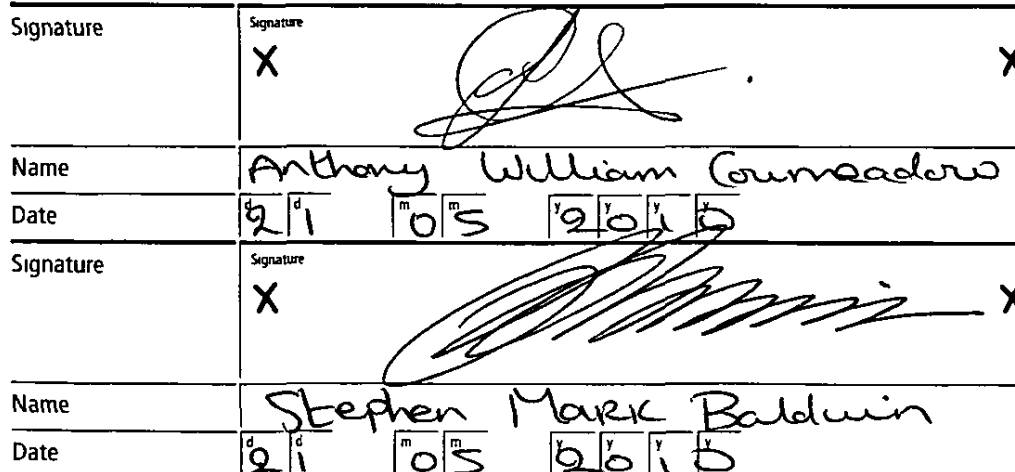 Signature Signature
X X
Name Anthony William
Date d2 d1 m0 m5 y2 y0 y1 y0
Signature Signature
X X
Name Stephen Mark Baldwin
Date d2 d1 m0 m5 y2 y0 y1 y0